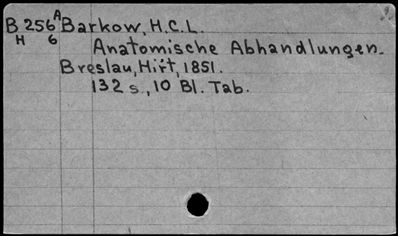 B 256A Barkow, H.C.L.
H 6
Anatomische Abhandlungen.
Breslau, Hirt, 1851.
132 s., 10 Bl. Tab.